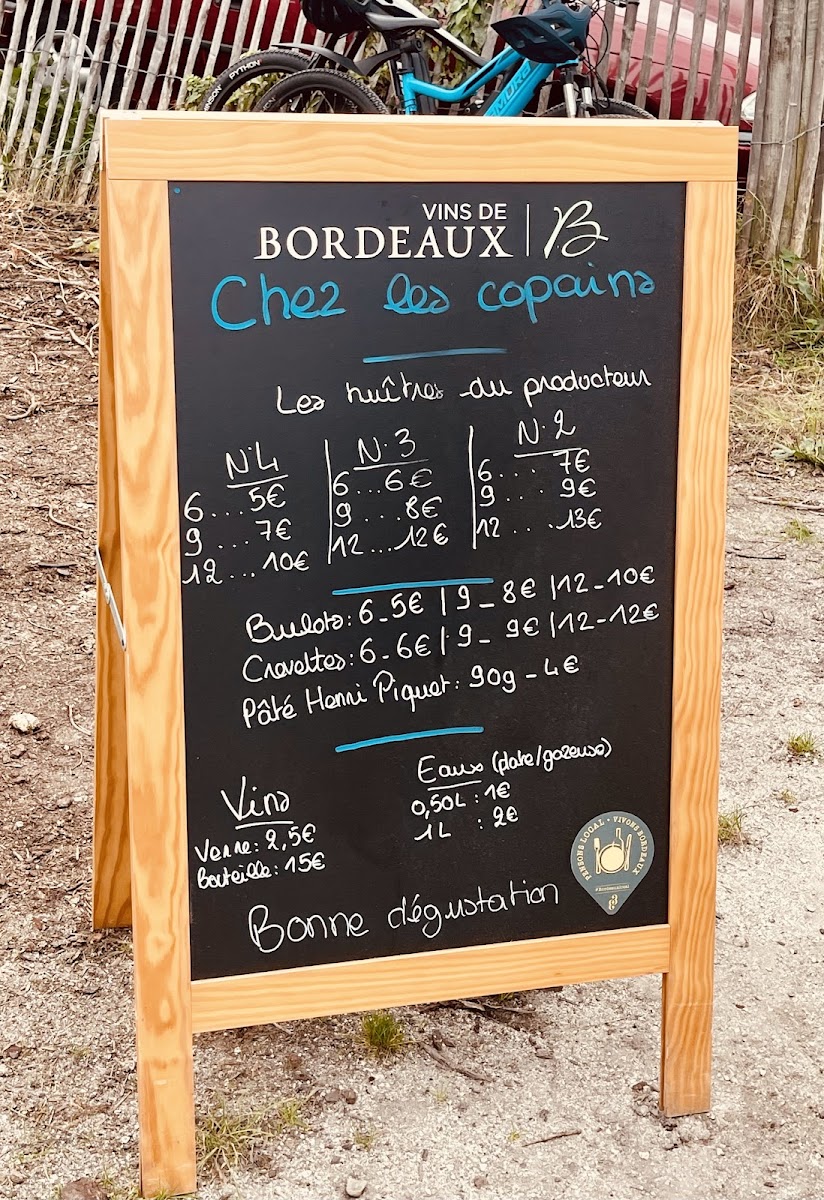 PYTHON
VINS DE
BORDEAUX | B
Chez les copains
Les huîtres du producteur
N°4
6...5€
9...7€
12...10€
N.3
6...6€
9...8€
12...12€
N.2
6....7€
9....9€
12....13€
Bulots: 6-5€ | 9-8€ | 12-10€
Crevettes: 6-6€ | 9-9€ | 12-12€
Pâté Henri Piquet: 90g-4€
Vins
Verre: 2,5€
Bouteille: 15€
Eaux (plate/gazeuse)
0,50L: 1€
1L : 2€
PENSONS LOCAL • VIVONS BORDEAUX
Bonne dégustation